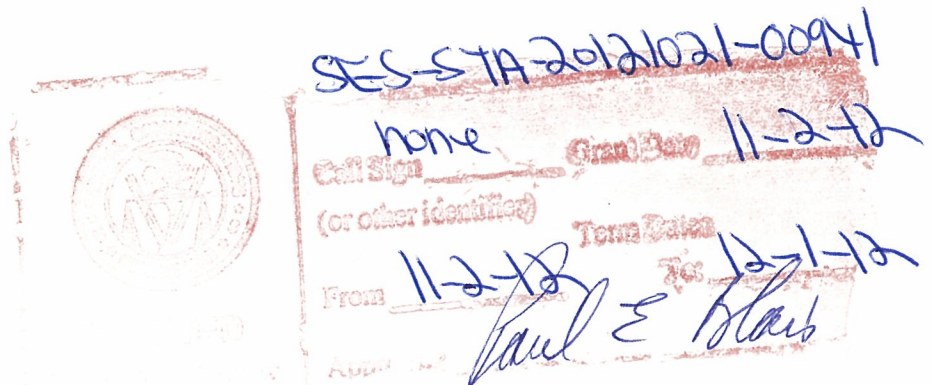 SES-STA-20121021-00941
none 11-2-12
Call Sign Grant Date
(or other identifier)
Term Dates
From 11-2-12 To: 12-1-12
Paul E Blais